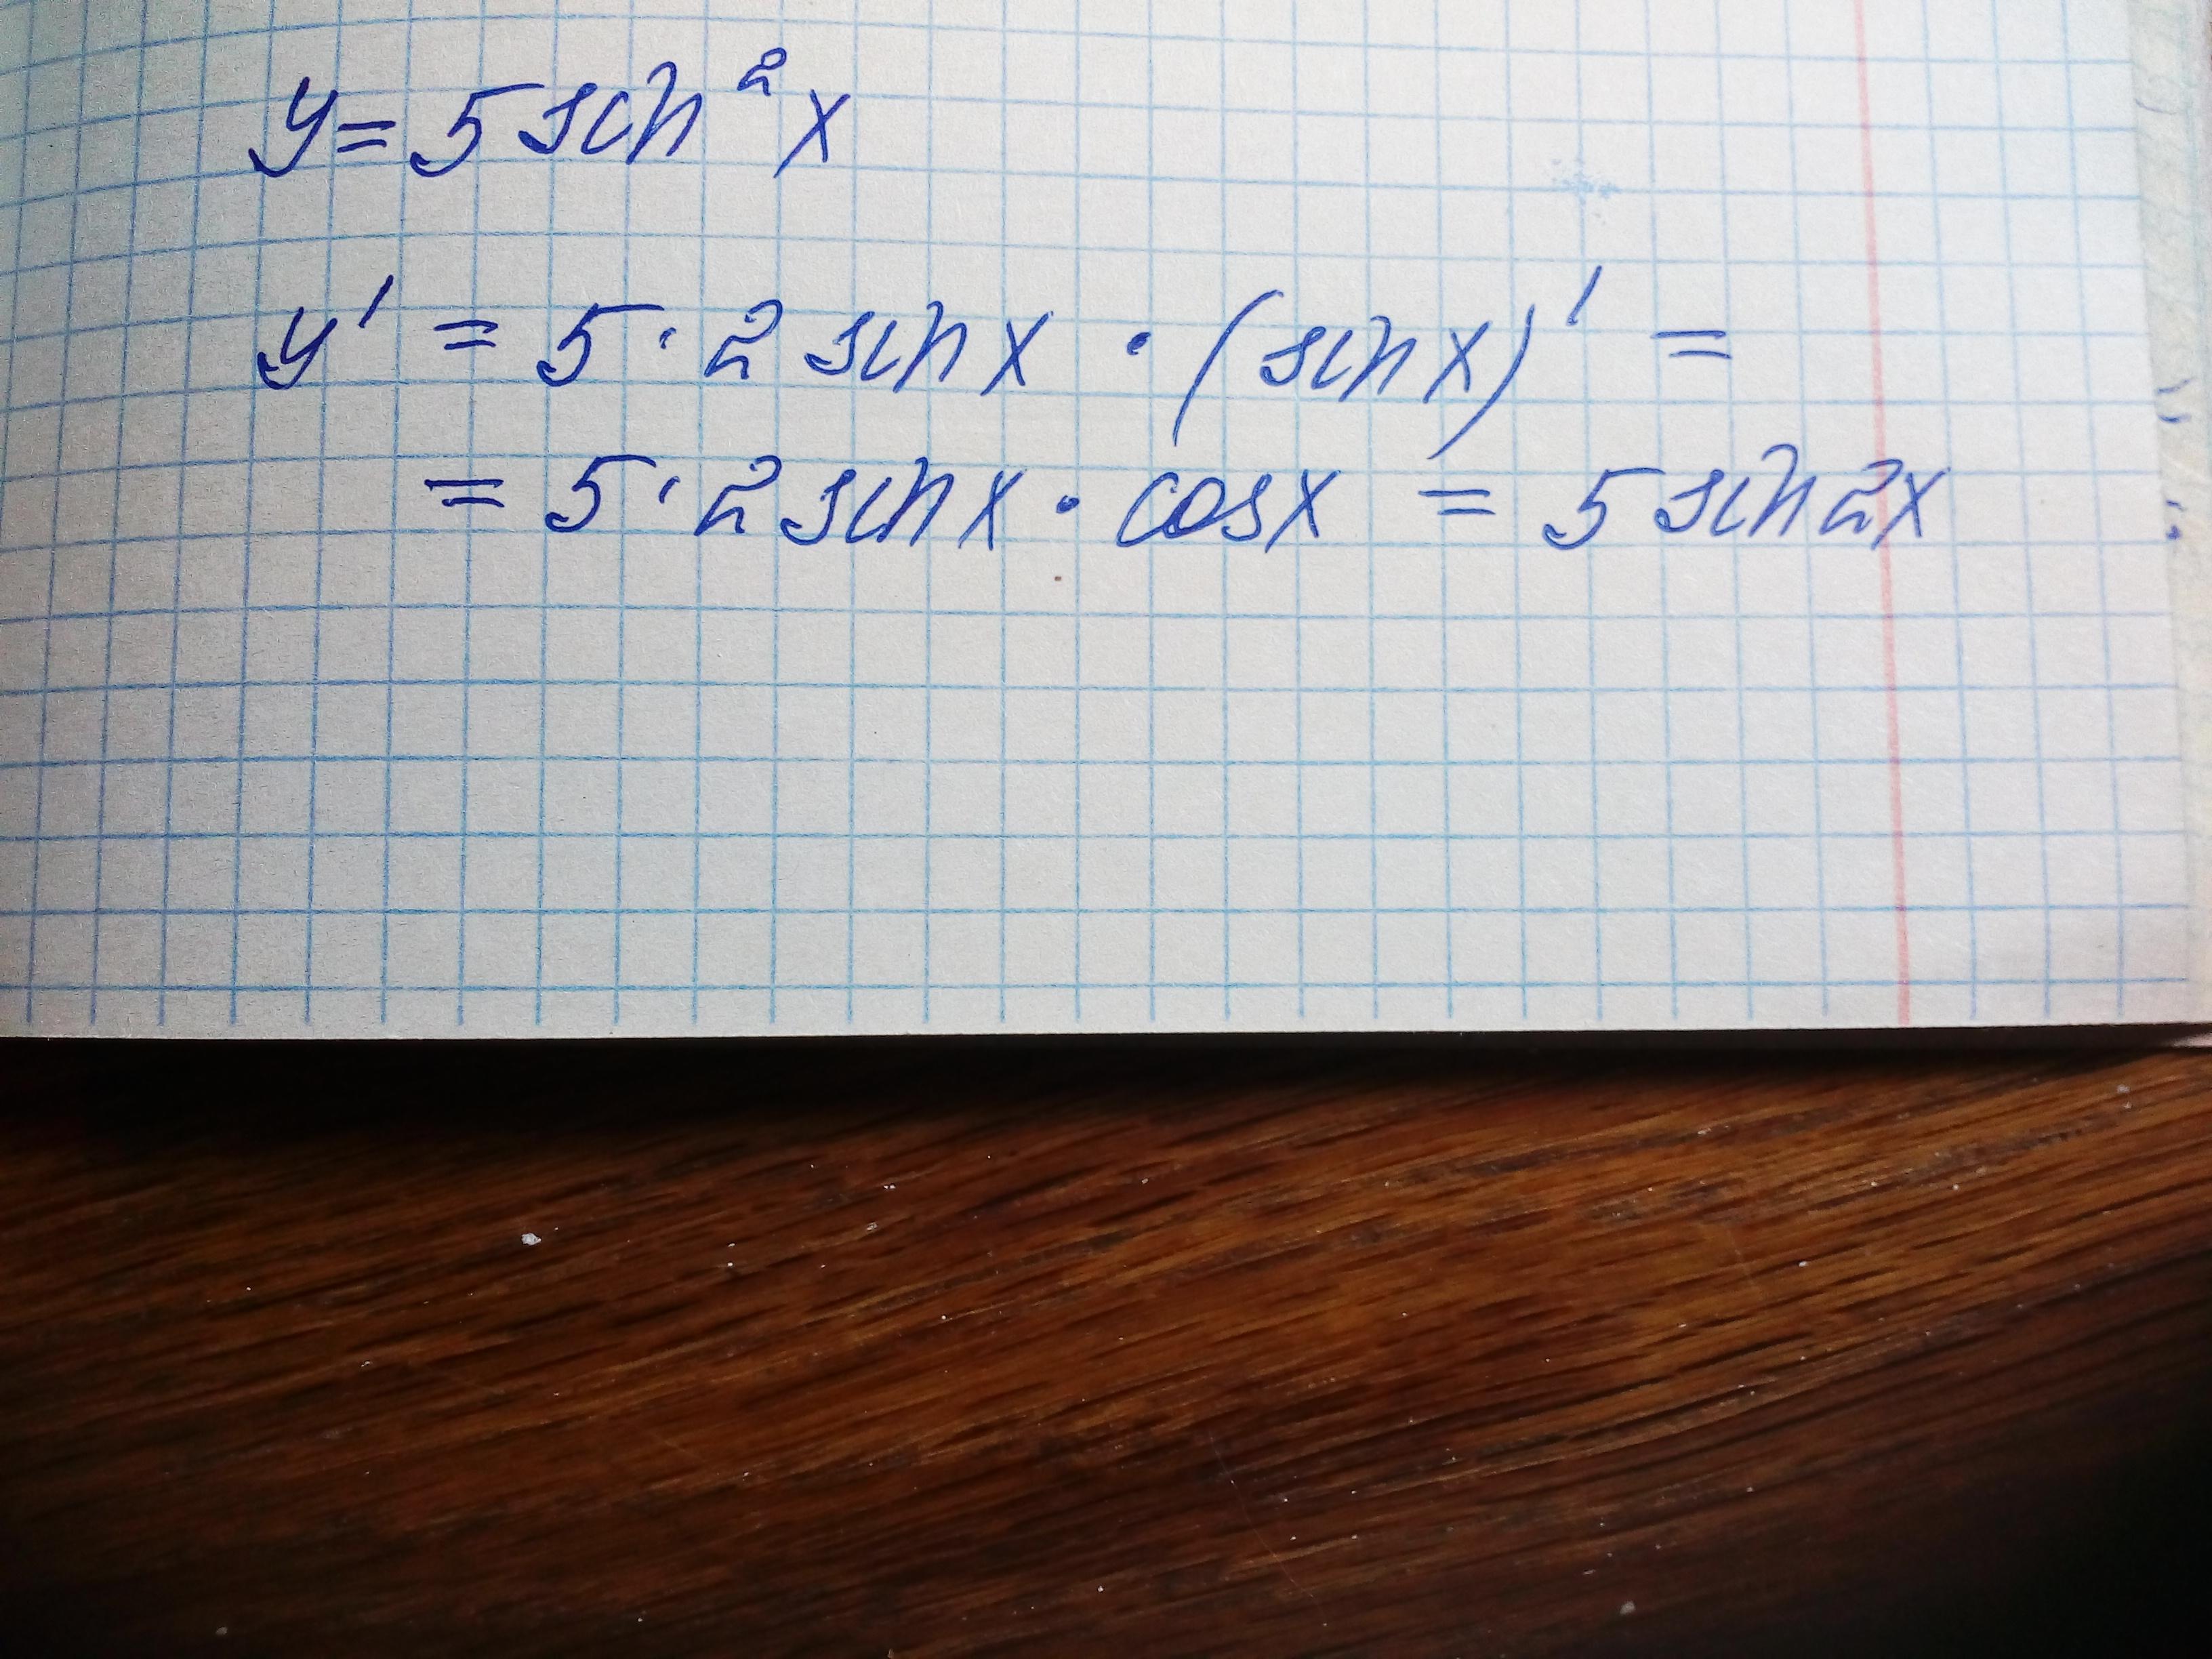 y = 5 sin²x
y' = 5 · 2 sin x · (sin x)' =
= 5 · 2 sin x · cos x = 5 sin 2x